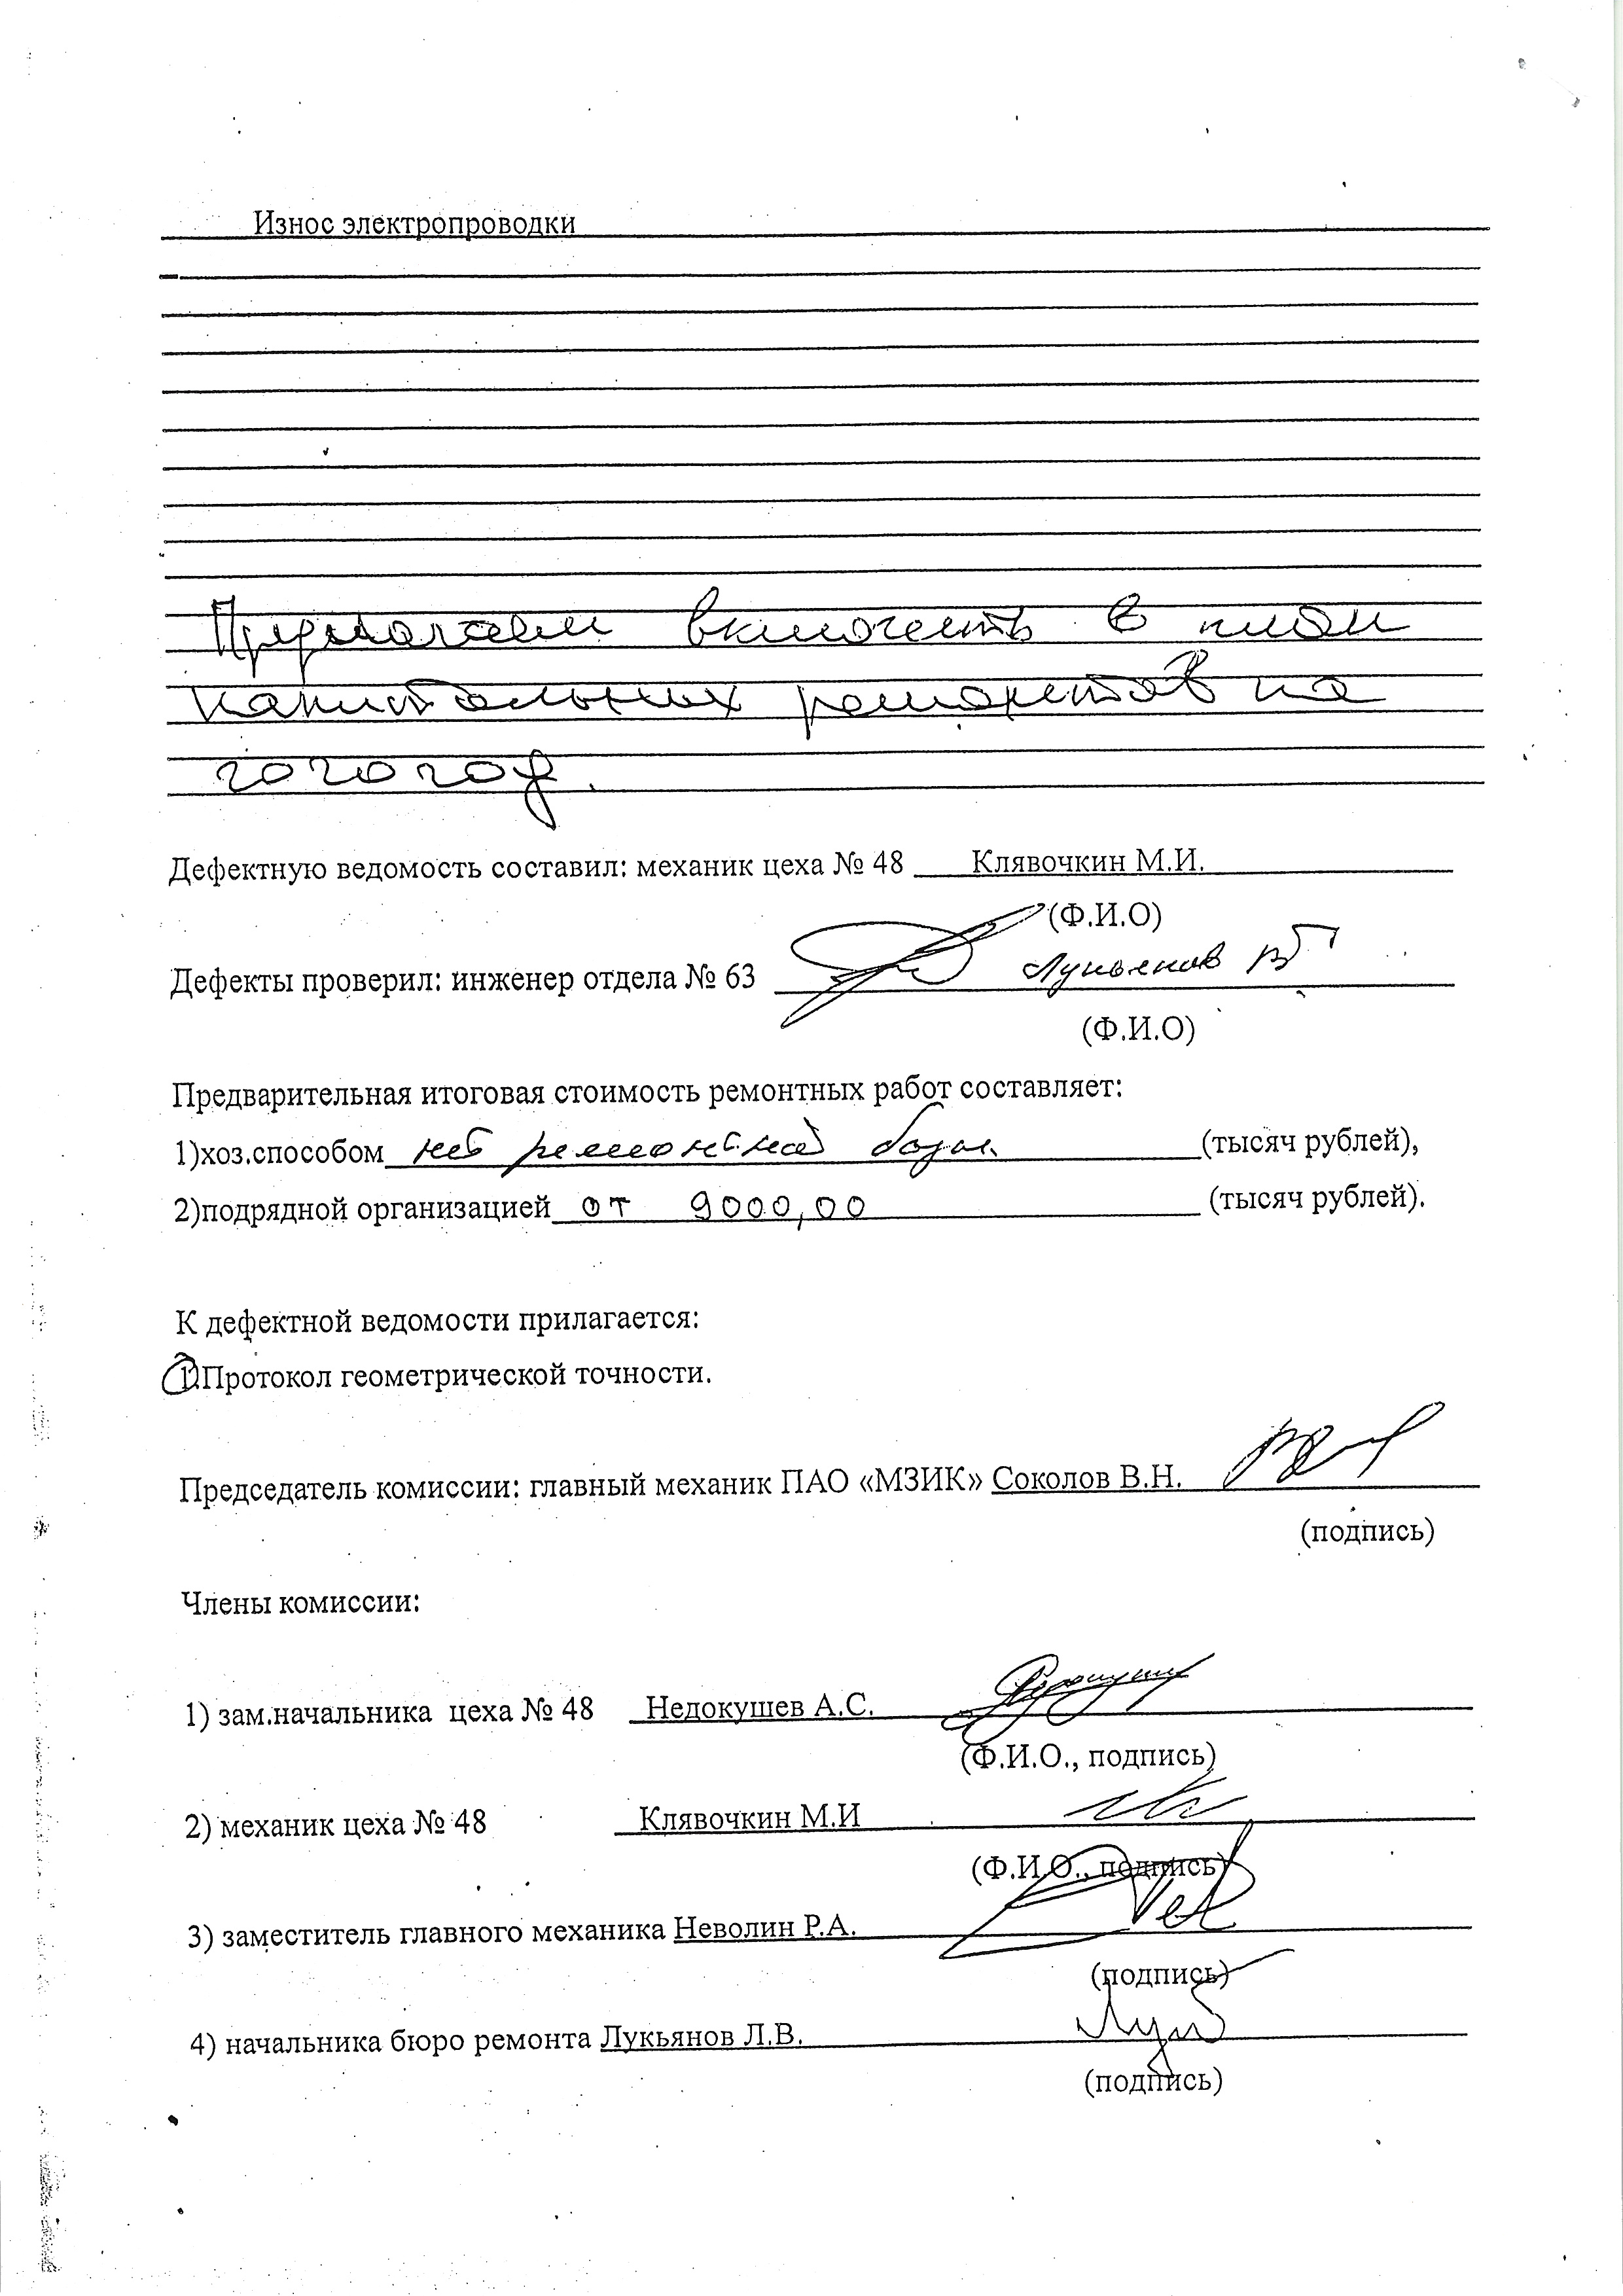 Износ электропроводки
Предлагаем включить в план
капитальных ремонтов на
2020 год.
Дефектную ведомость составил: механик цеха № 48 Клявочкин М.И.
(Ф.И.О)
Дефекты проверил: инженер отдела № 63 Лукьянов
(Ф.И.О)
Предварительная итоговая стоимость ремонтных работ составляет:
1)хоз.способом нет ремонтной базы (тысяч рублей),
2)подрядной организацией от 9000,00 (тысяч рублей).
К дефектной ведомости прилагается:
1.Протокол геометрической точности.
Председатель комиссии: главный механик ПАО «МЗИК» Соколов В.Н.
(подпись)
Члены комиссии:
1) зам.начальника цеха № 48 Недокушев А.С.
(Ф.И.О., подпись)
2) механик цеха № 48 Клявочкин М.И
(Ф.И.О., подпись)
3) заместитель главного механика Неволин Р.А.
(подпись)
4) начальника бюро ремонта Лукьянов Л.В.
(подпись)